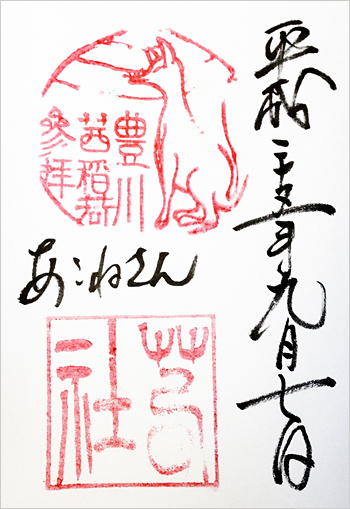 平成二十五年九月七日
豊川
茜稲荷
參拝
あかねさん
茜
社